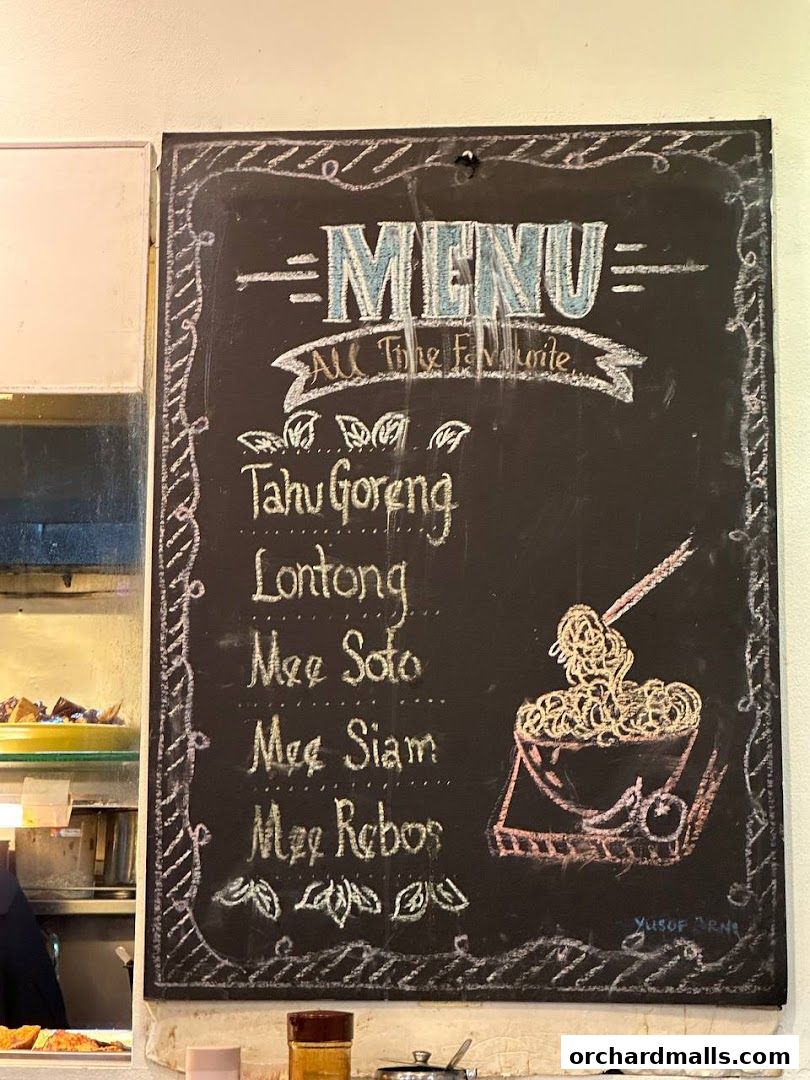 MENU
All Time Favourite...
Tahu Goreng
Lontong
Mee Soto
Mee Siam
Mee Rebos
YUSOF
orchardmalls.com